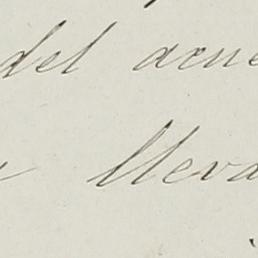 del acue
lleva